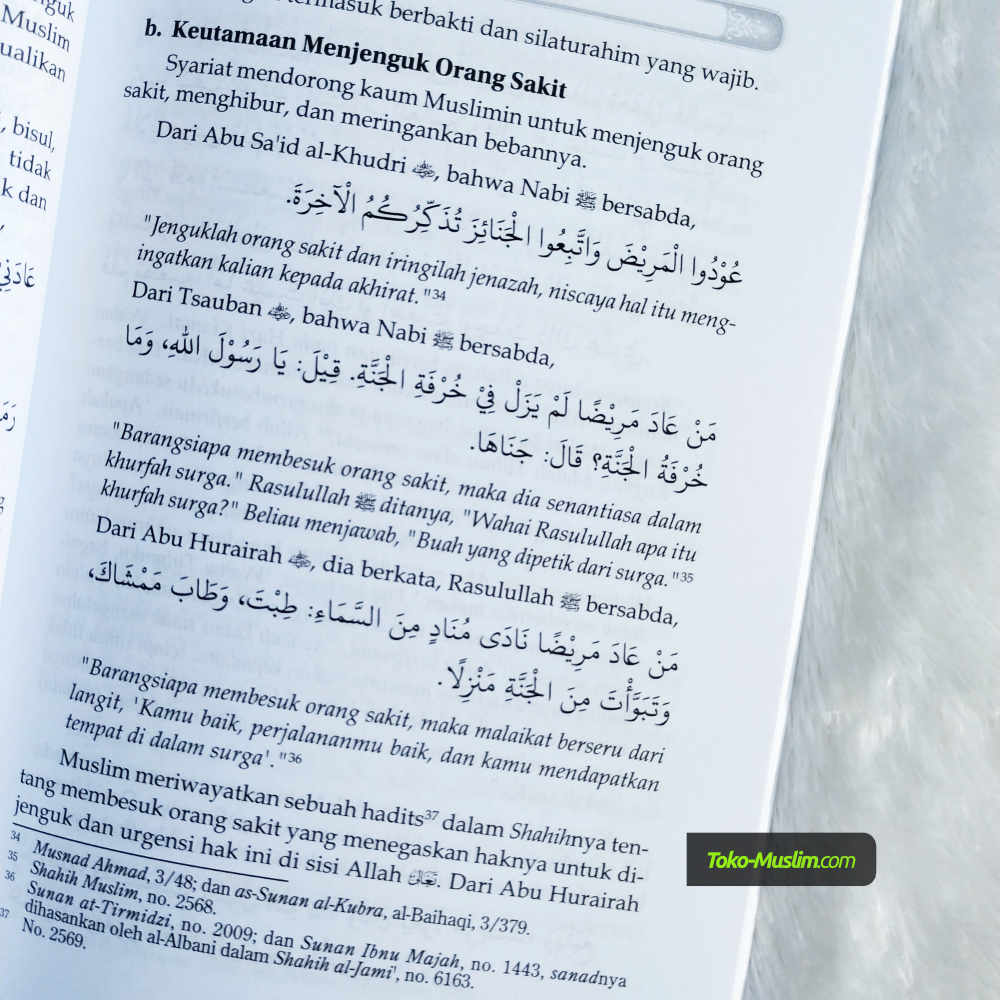 guk
Muslim
ualikan
, bisul,
tidak
k dan
عَادَنِيْ
termasuk berbakti dan silaturahim yang wajib.
b. Keutamaan Menjenguk Orang Sakit
Syariat mendorong kaum Muslimin untuk menjenguk orang
sakit, menghibur, dan meringankan bebannya.
Dari Abu Sa'id al-Khudri ﷺ, bahwa Nabi ﷺ bersabda,
عُوْدُوا الْمَرِيْضَ وَاتَّبِعُوا الْجَنَائِزَ تُذَكِّرُكُمُ الْآخِرَةَ.
"Jenguklah orang sakit dan iringilah jenazah, niscaya hal itu meng-
ingatkan kalian kepada akhirat."34
Dari Tsauban, bahwa Nabi ﷺ bersabda,
مَنْ عَادَ مَرِيْضًا لَمْ يَزَلْ فِيْ خُرْفَةِ الْجَنَّةِ. قِيْلَ: يَا رَسُوْلَ اللهِ، وَمَا
خُرْفَةُ الْجَنَّةِ؟ قَالَ: جَنَاهَا.
"Barangsiapa membesuk orang sakit, maka dia senantiasa dalam
khurfah surga." Rasulullah ﷺ ditanya, "Wahai Rasulullah apa itu
khurfah surga?" Beliau menjawab, "Buah yang dipetik dari surga."35
Dari Abu Hurairah, dia berkata, Rasulullah ﷺ bersabda,
مَنْ عَادَ مَرِيْضًا نَادَى مُنَادٍ مِنَ السَّمَاءِ: طِبْتَ، وَطَابَ مَمْشَاكَ،
وَتَبَوَّأْتَ مِنَ الْجَنَّةِ مَنْزِلًا.
"Barangsiapa membesuk orang sakit, maka malaikat berseru dari
langit, 'Kamu baik, perjalananmu baik, dan kamu mendapatkan
tempat di dalam surga'."36
Muslim meriwayatkan sebuah hadits37 dalam Shahihnya ten-
tang membesuk orang sakit yang menegaskan haknya untuk di-
jenguk dan urgensi hak ini di sisi Allah. Dari Abu Hurairah
34 Musnad Ahmad, 3/48; dan as-Sunan al-Kubra, al-Baihaqi, 3/379.
35 Shahih Muslim, no. 2568.
36 Sunan at-Tirmidzi, no. 2009; dan Sunan Ibnu Majah, no. 1443, sanadnya
dihasankan oleh al-Albani dalam Shahih al-Jami', no. 6163.
37 No. 2569.
Toko-Muslim.com